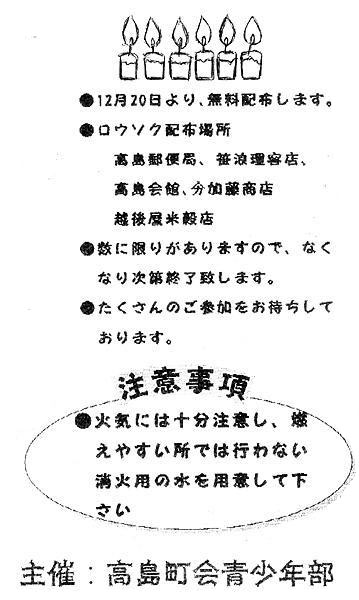 ●12月20日より、無料配布します。
●ロウソク配布場所
高島郵便局、笹浪理容店、
高島会館、分加藤商店
越後屋米穀店
●数に限りがありますので、なく
なり次第終了致します。
●たくさんのご参加をお待ちして
おります。
注意事項
●火気には十分注意し、燃
えやすい所では行わない
消火用の水を用意して下
さい
主催：高島町会青少年部